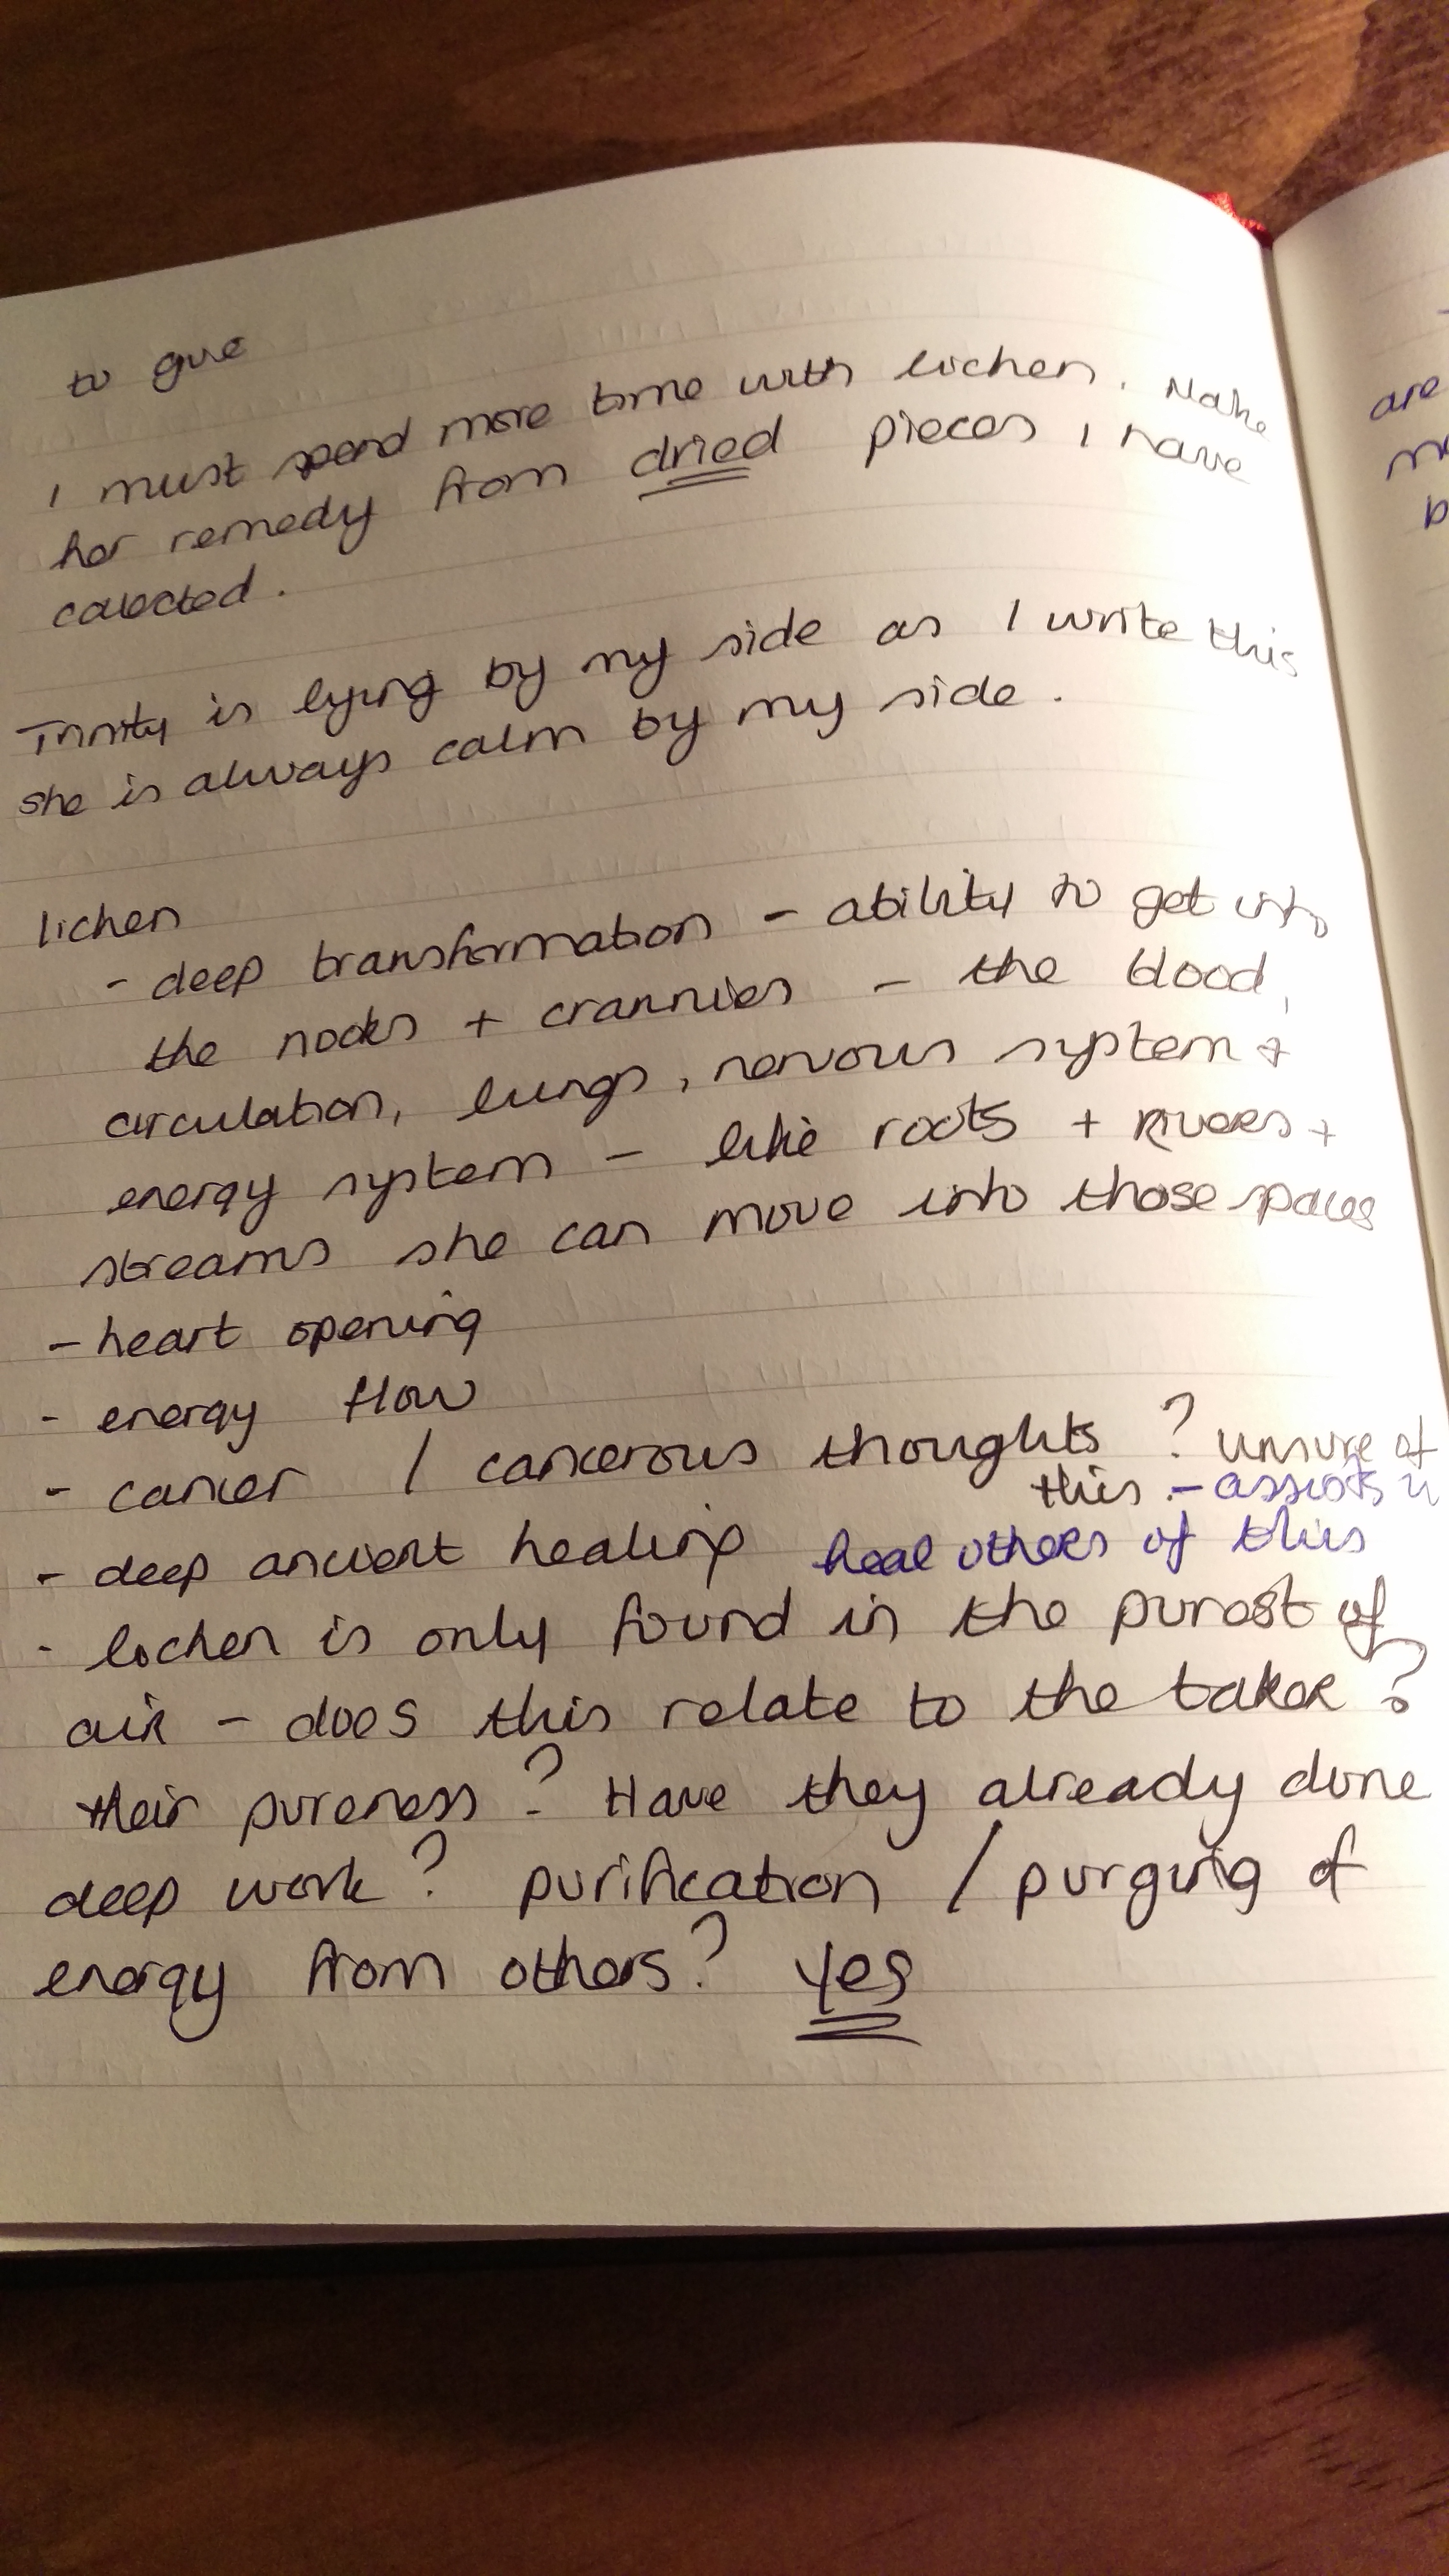 to give
I must spend more time with lichen. Make
her remedy from dried pieces I have
collected.
Trinity is lying by my side as I write this
she is always calm by my side.
lichen
- deep transformation - ability to get into
the nooks + crannies - the blood,
circulation, lungs, nervous system +
energy system - like roots + rivers +
streams she can move into those spaces
- heart opening
- energy flow
- cancer / cancerous thoughts ? unsure of
this. - assists
- deep ancient healing heal others of this
- lichen is only found in the purest of
air - does this relate to the taker?
their pureness? Have they already done
deep work? purification / purging of
energy from others? yes
are